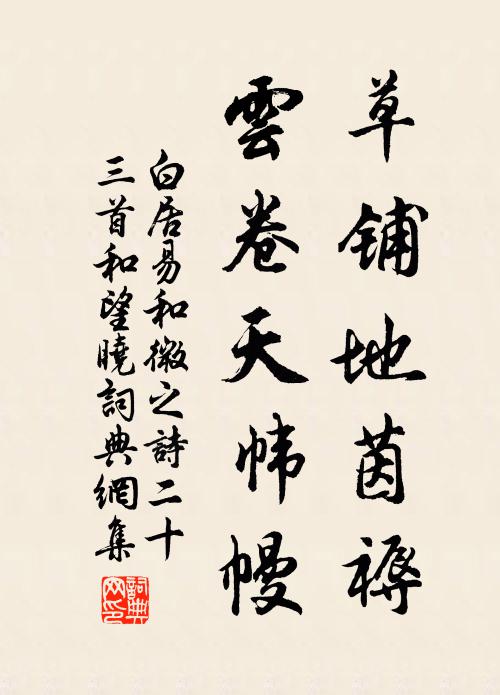 草鋪地茵褥
雲卷天幃幔
白居易和微之詩二十
三首和望曉詞典網集
詞典网印